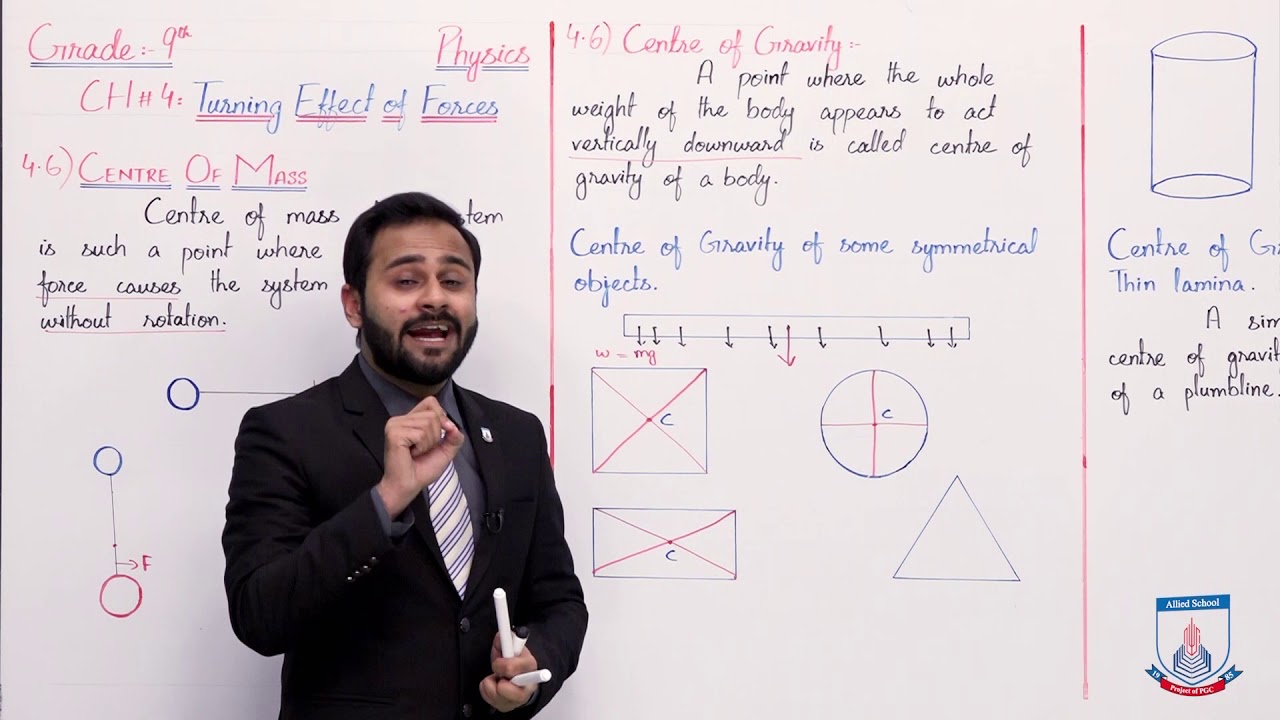 Grade:- 9th
Physics
CH # 4: Turning Effect of Forces
4.6) CENTRE OF MASS
Centre of mass
is such a point where
force causes the system
without rotation.
F
4.6) Centre of Gravity:-
A point where the whole
weight of the body appears to act
vertically downward is called centre of
gravity of a body.
Centre of Gravity of some symmetrical
objects.
w = mg
C
C
C
Centre of
Thin lamina.
A
centre of
of a plumbline.
Allied School
1985
Project of PGC